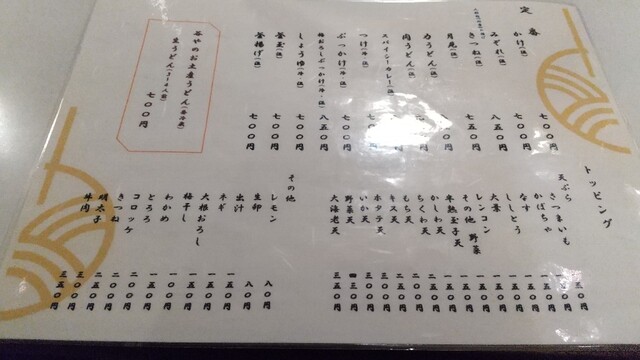 定番
かけ(温) 七〇〇円
みぞれ(温) 七〇〇円
きつね(温) 八五〇円
月見(温) 七五〇円
力うどん(温)
肉うどん(温)
スパイシーカレー(温)
つけ(冷・温) 七〇〇
ぶっかけ(冷・温) 七〇〇
梅おろしぶっかけ(冷・温) 八五〇円
しょうゆ(冷・温) 七〇〇円
釜玉(温) 七〇〇円
釜揚げ(温) 七〇〇円
谷やのお土産うどん(要冷蔵)
生うどん 七〇〇円
トッピング
天ぷら
さつまいも
かぼちゃ
なす
ししとう
大葉
レンコン
その他 野菜
半熟玉子天 一五〇円
かしわ天 二五〇円
ちくわ天 一五〇円
もち天 二〇〇円
キス天 二〇〇円
ホタテ天 三〇〇円
いか天 三〇〇円
野菜天
大海老天 三五〇円
その他
レモン 八〇円
生卵 八〇円
出汁 一五〇円
ネギ 一五〇円
大根おろし 一五〇円
梅干し 一〇〇円
わかめ 一〇〇円
とろろ 二〇〇円
コロッケ 二〇〇円
きつね 二〇〇円
明太子 二五〇円
牛肉 三五〇円